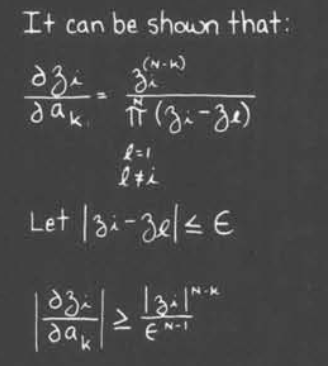 It can be shown that:
∂zi/∂ak = zi^(N-K) / N∏ (zi-zl)
l=1
l≠i
Let |zi-zl| ≤ ε
|∂zi/∂ak| ≥ |zi|^N-K / ε^N-1